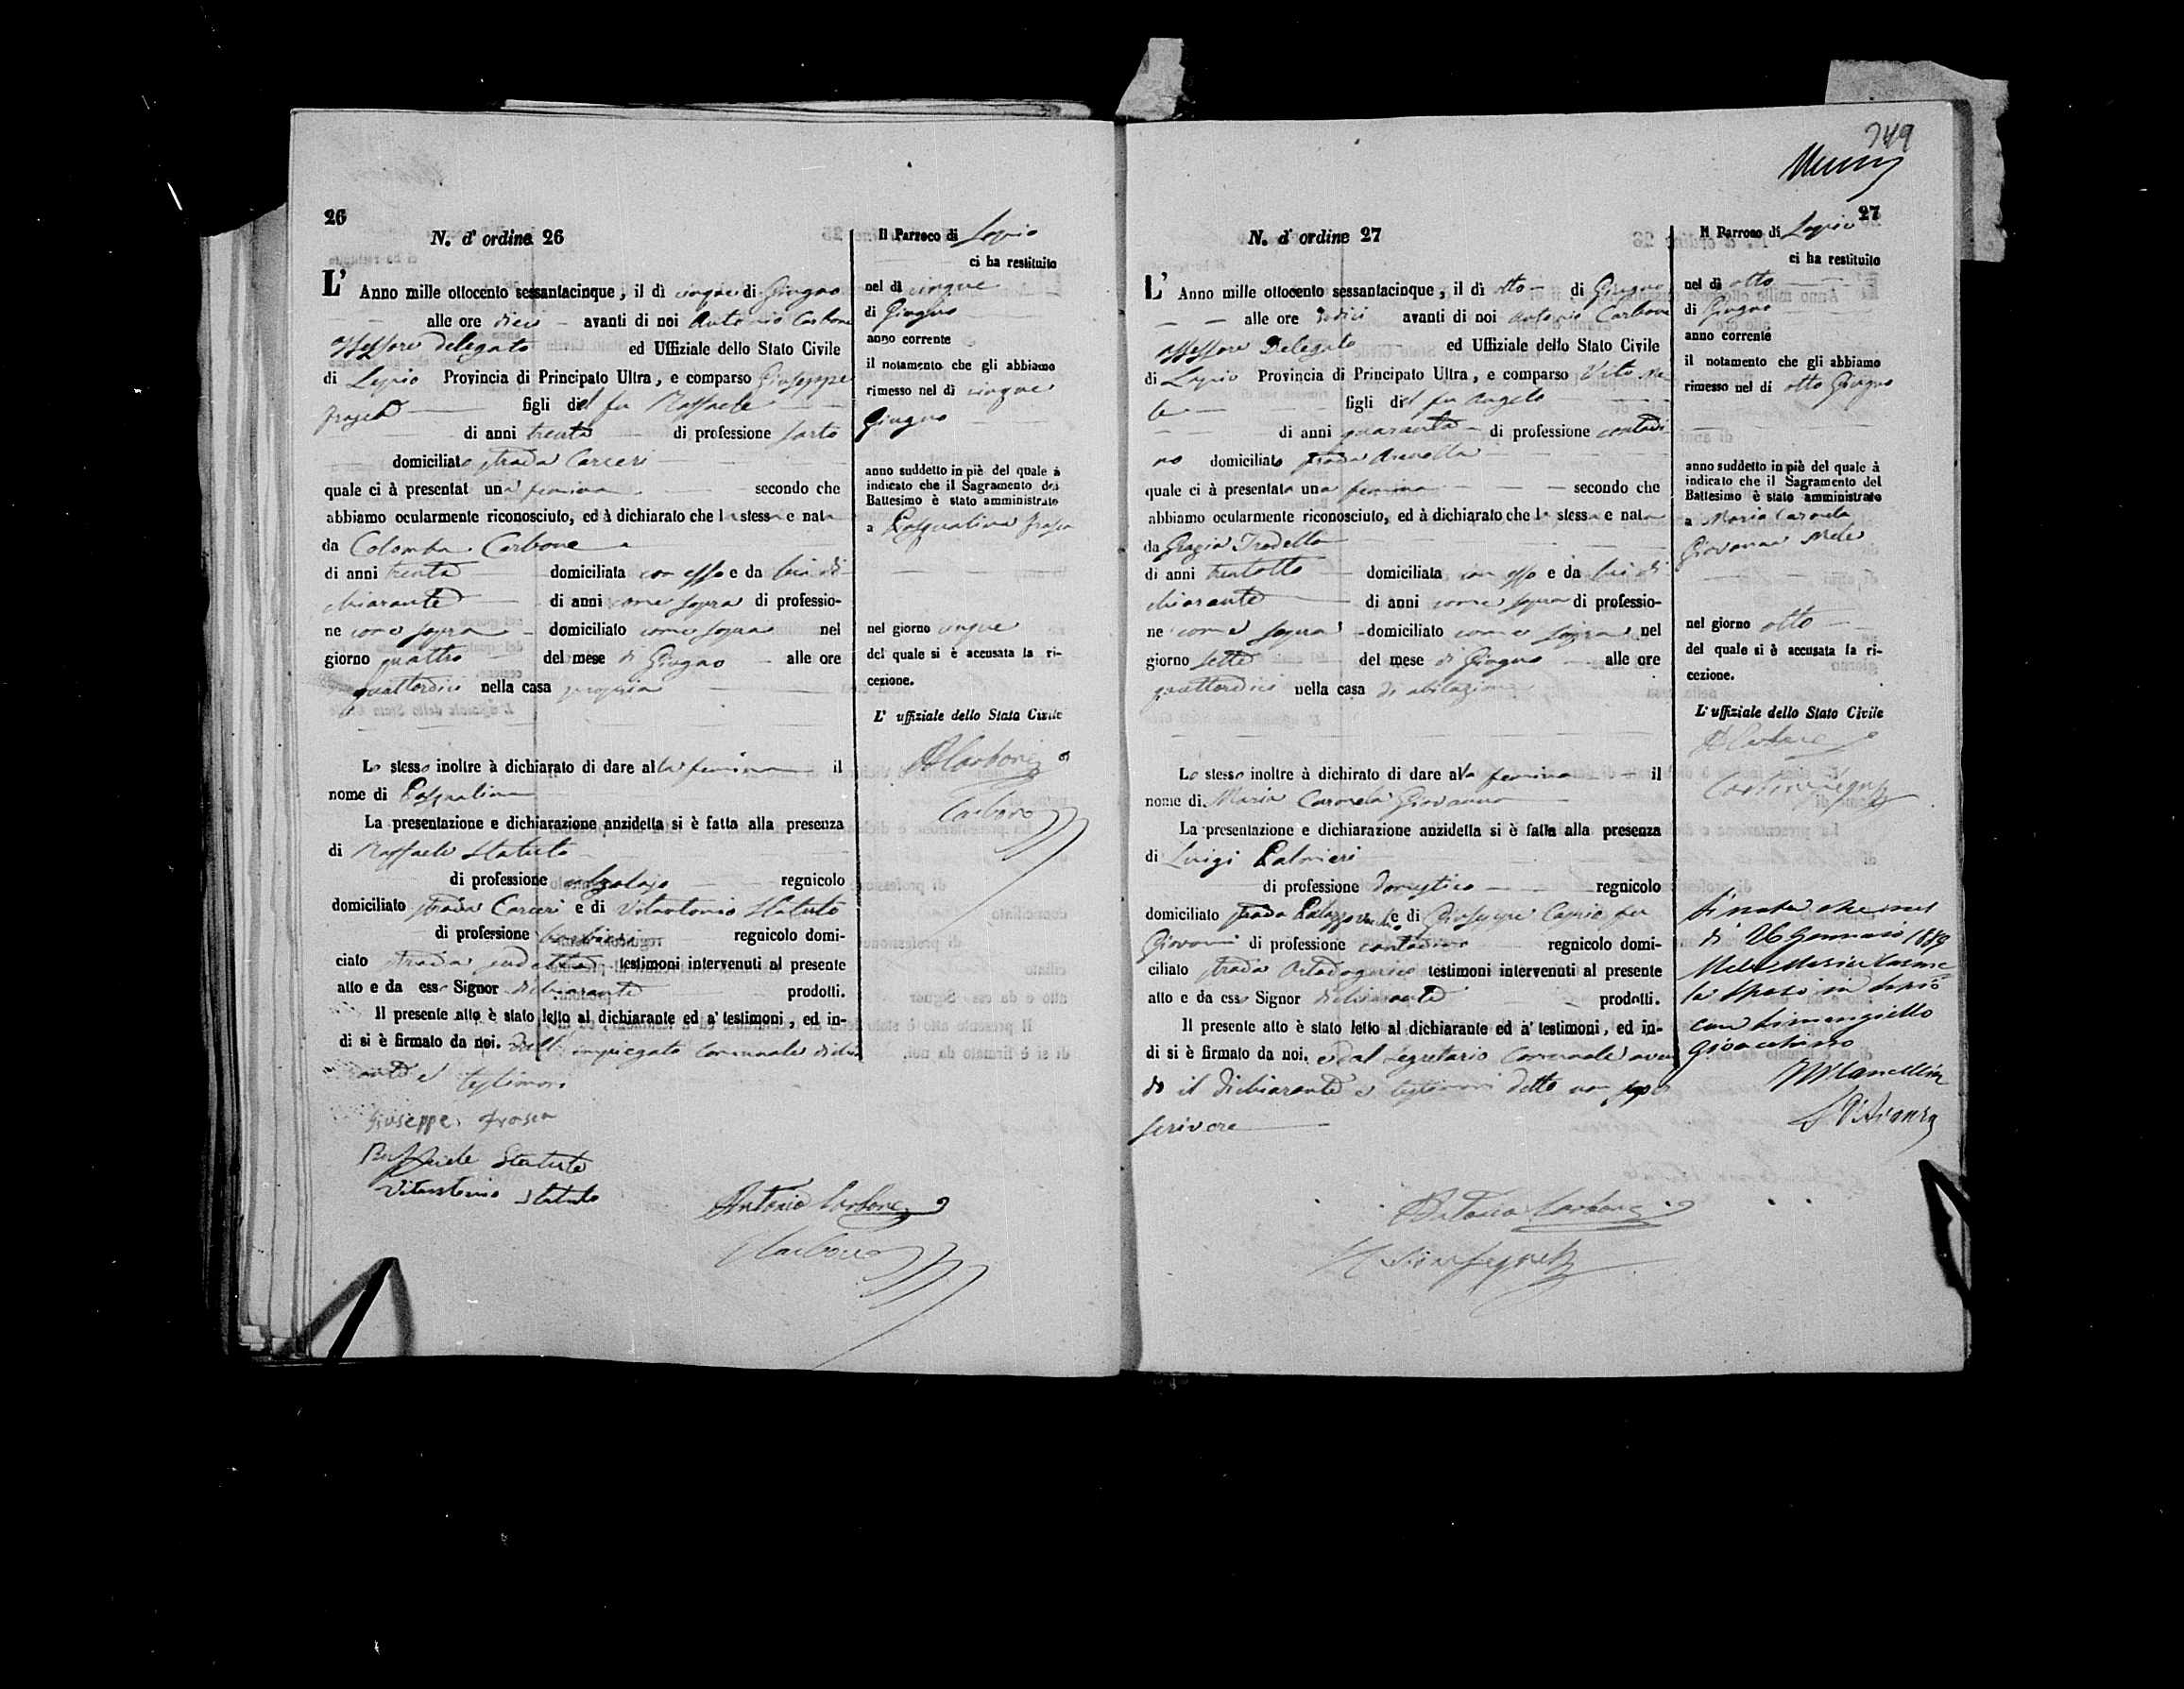 26
N. d' ordine 26
L' Anno mille ottocento sessantacinque, il dì cinque di Giugno
alle ore dieci avanti di noi Antonio Carbone
Assessore Delegato ed Uffiziale dello Stato Civile
di Lapio Provincia di Principato Ultra, e comparso Giuseppe
figli del fu Raffaele
di anni trenta di professione sarto
domiciliato strada Carceri
quale ci à presentat una femina secondo che
abbiamo ocularmente riconosciuto, ed à dichiarato che la stessa e nata
da Colomba Carbone
di anni trenta domiciliata con esso e da lui di
chiarante di anni come sopra di professio-
ne come sopra domiciliato come sopra nel
giorno quattro del mese di Giugno alle ore
quattordici nella casa propria
Lo stesso inoltre à dichiarato di dare alla femina il
nome di Pasqualina
La presentazione e dichiarazione anzidetta si è fatta alla presenza
di Raffaele Statuto
di professione regnicolo
domiciliato strada Carceri e di Vitantonio Statuto
di professione regnicolo domi-
ciato strada sudetta testimoni intervenuti al presente
atto e da esso Signor dichiarante prodotti.
Il presente atto è stato letto al dichiarante ed a' testimoni, ed in-
di si è firmato da noi. dall' impiegato Comunale dichia
rante e testimoni
Giuseppe
Raffaele Statuto
Vitantonio Statuto
Antonio Carbone
Carbone
Il Parroco di Lapio
ci ha restituito
nel dì cinque
di Giugno
anno corrente
il notamento che gli abbiamo
rimesso nel dì cinque
Giugno
anno suddetto in piè del quale à
indicato che il Sagramento del
Battesimo è stato amministrato
a Pasqualina
nel giorno cinque
del quale si è accusata la ri-
cezione.
L' uffiziale dello Stato Civile
A Carbone
Carbone
249
27
N. d' ordine 27
L' Anno mille ottocento sessantacinque, il dì otto di Giugno
alle ore avanti di noi Antonio Carbone
Assessore Delegato ed Uffiziale dello Stato Civile
di Lapio Provincia di Principato Ultra, e comparso Vito Me
le figli del fu Angelo
di anni quaranta di professione contadi
no domiciliato strada
quale ci à presentata una femina secondo che
abbiamo ocularmente riconosciuto, ed à dichiarato che la stessa e nata
da Grazia
di anni trentotto domiciliata con esso e da lui di
chiarante di anni come sopra di professio-
ne come sopra domiciliato come sopra nel
giorno sette del mese di Giugno alle ore
quattordici nella casa di abitazione
Lo stesso inoltre à dichirato di dare alla femina il
nome di Maria Carmela Giovanna
La presentazione e dichiarazione anzidetta si è fatta alla presenza
di Luigi Palmieri
di professione domestico regnicolo
domiciliato strada e di Giuseppe Caprio fu
Giovanni di professione contadino regnicolo domi-
ciliato strada testimoni intervenuti al presente
atto e da esso Signor dichiarante prodotti.
Il presente atto è stato letto al dichiarante ed a' testimoni, ed in-
di si è firmato da noi. e dal Segretario Comunale aven
do il dichiarante e testimoni detto non saper
scrivere
Antonio Carbone
Il Parroco di Lapio
ci ha restituito
nel dì otto
di Giugno
anno corrente
il notamento che gli abbiamo
rimesso nel dì otto Giugno
anno suddetto in piè del quale à
indicato che il Sagramento del
Battesimo è stato amministrato
a Maria Carmela
Giovanna Mele
nel giorno otto
del quale si è accusata la ri-
cezione.
L' uffiziale dello Stato Civile
A Carbone
Si nota che nel
dì 26 Gennaio 1889
Mele Maria Carme
la sposò in Lapio
con
Gioacchino